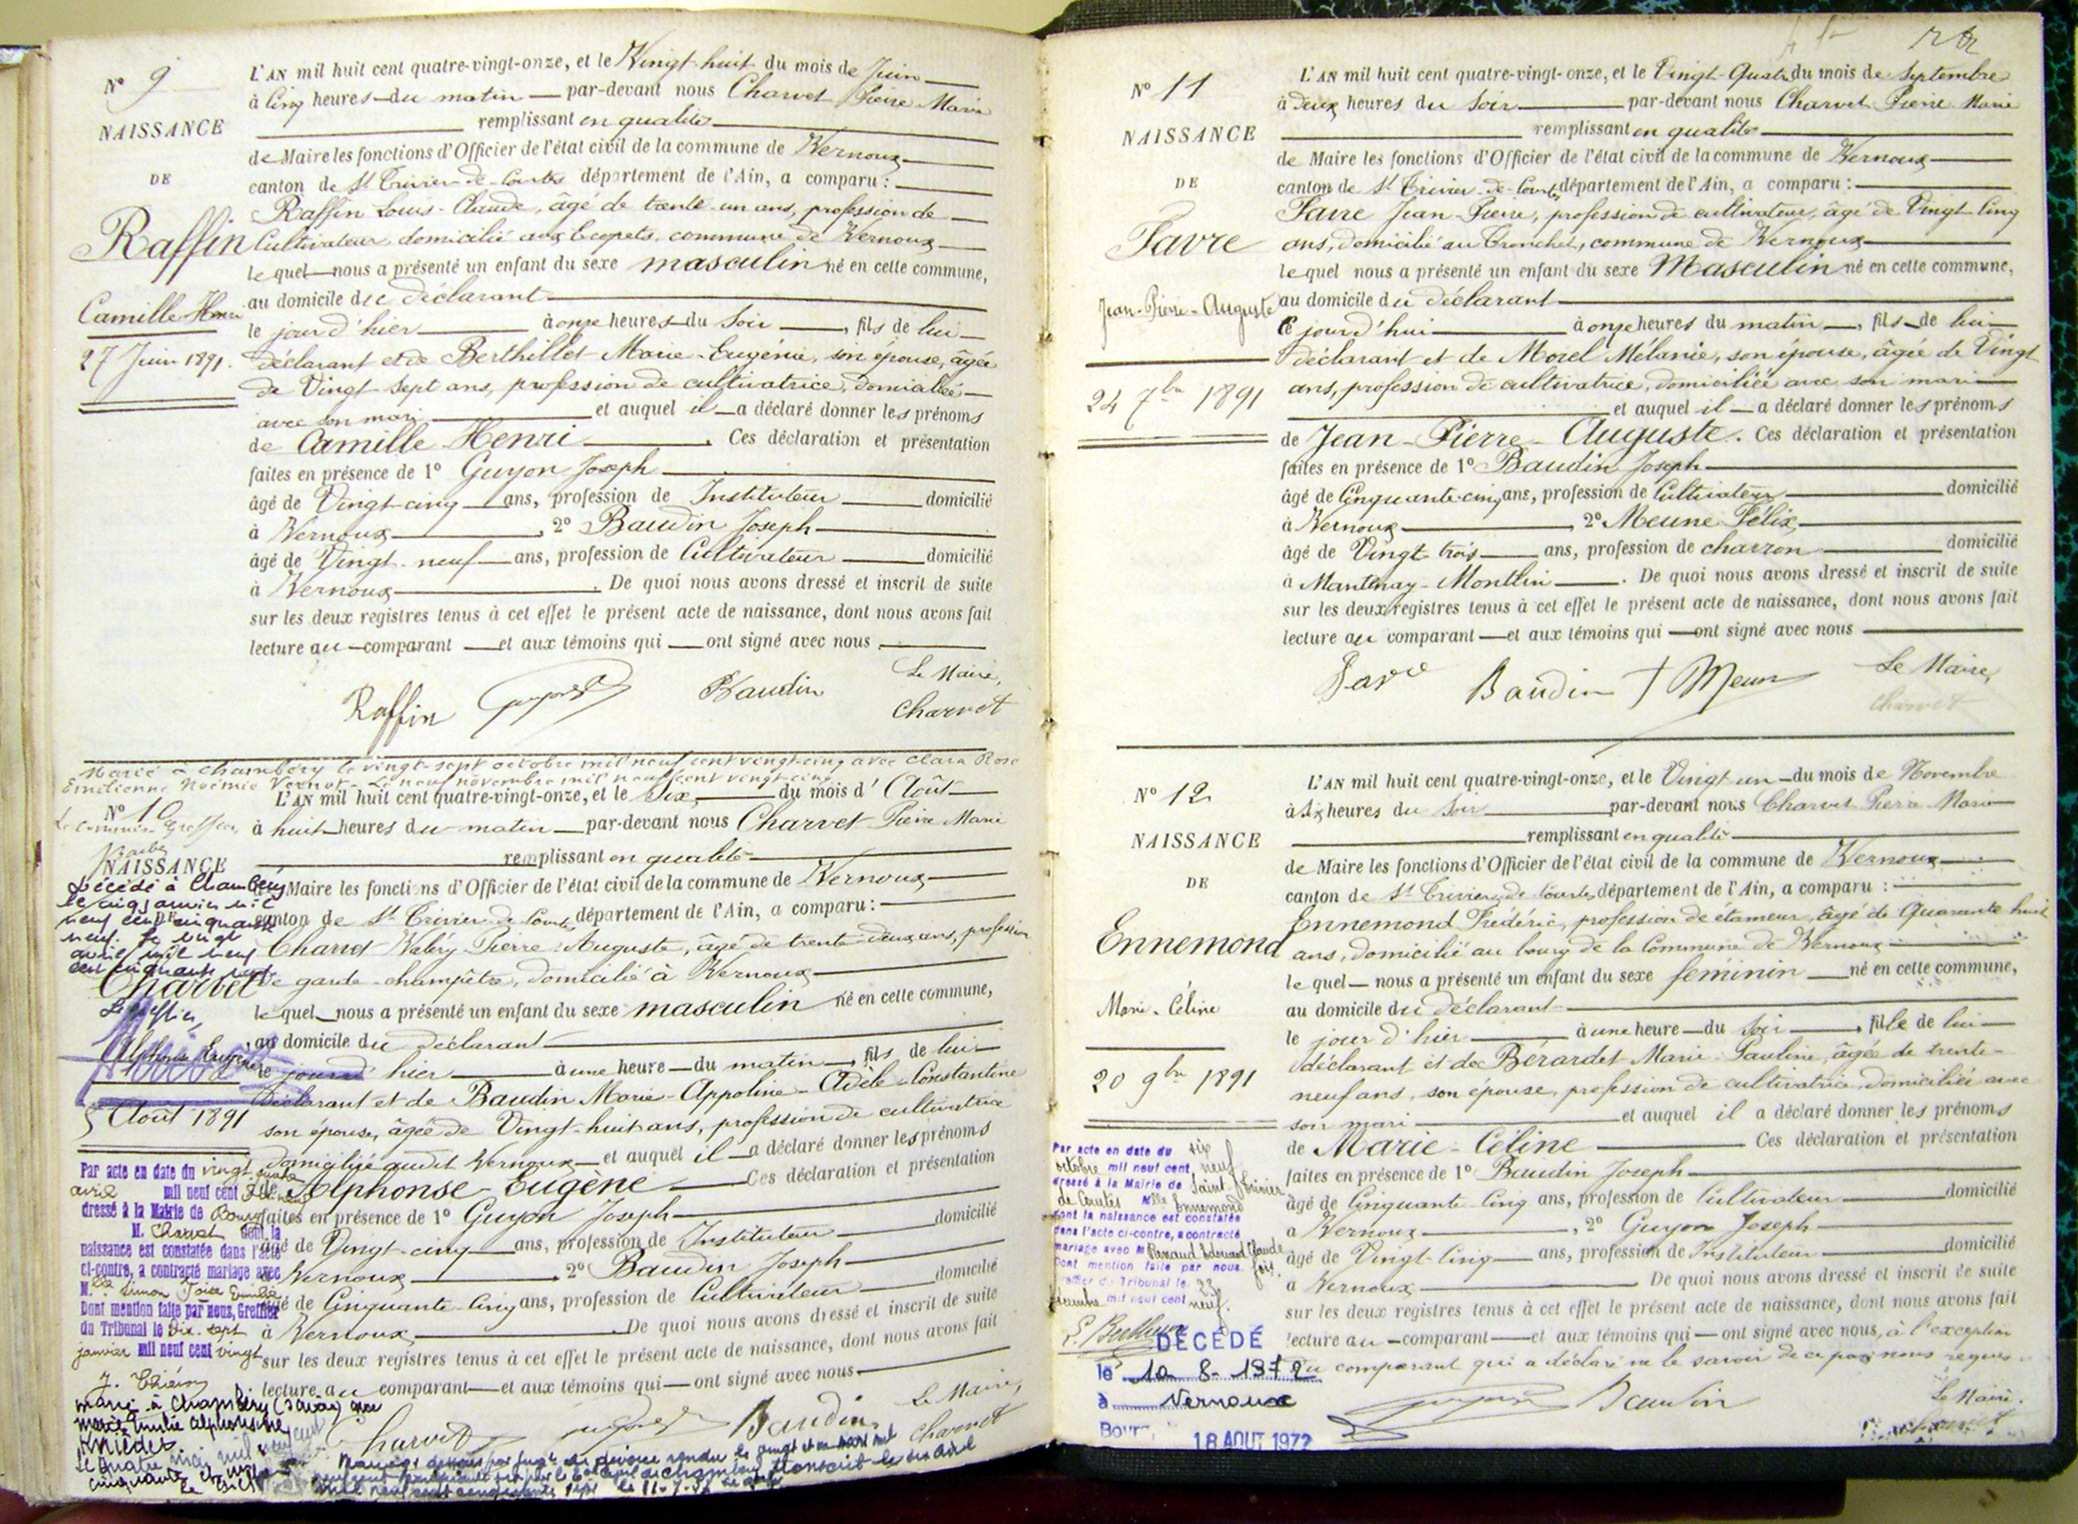 Nº 9
NAISSANCE
DE
Raffin
Camille Henri
27 Juin 1891.
L'AN mil huit cent quatre-vingt-onze, et le Vingt-huit du mois de Juin
à Cinq heures du matin par-devant nous Charvet Pierre Marie
remplissant en qualité
de Maire les fonctions d'Officier de l'état civil de la commune de Vernoux
canton de St Trivier-de-Courtes département de l'Ain, a comparu :
Raffin Louis-Claude, âgé de trente-un ans, profession de
Cultivateur, domicilié aux commune de Vernoux
le quel nous a présenté un enfant du sexe masculin né en cette commune,
au domicile du déclarant
le jour d'hier à onze heures du Soir, fils de lui
déclarant et de Berthillet Marie-Eugénie, son épouse, âgée
de Vingt-sept ans, profession de cultivatrice, domiciliée
avec son mari et auquel il a déclaré donner les prénoms
de Camille Henri. Ces déclaration et présentation
faites en présence de 1º Guyon Joseph
âgé de Vingt-cinq ans, profession de Instituteur domicilié
à Vernoux, 2º Baudin Joseph
âgé de Vingt-neuf ans, profession de Cultivateur domicilié
à Vernoux. De quoi nous avons dressé et inscrit de suite
sur les deux registres tenus à cet effet le présent acte de naissance, dont nous avons fait
lecture au comparant et aux témoins qui ont signé avec nous.
Raffin Baudin Le Maire,
Charvet
Marié à Chambéry le vingt-sept octobre mil neuf cent vingt-cinq avec Clara Rose
Emilienne Noémie Vernot - Le neuf novembre mil neuf cent vingt-cinq
Nº 10
Le Commis Greffier
NAISSANCE
DE
Décédé à Chambéry
le cinq janvier mil
neuf cent cinquante
neuf. Le vingt
avril mil neuf
cent cinquante neuf
Charvet
Le Greffier,
Alphonse Eugène
5 Août 1891
Par acte en date du vingt-quatre
avril mil neuf cent
dressé à la Mairie de
M. Charvet dont la
naissance est constatée dans l'acte
ci-contre, a contracté mariage avec
M. lle Simon
Dont mention faite par nous, Greffier
du Tribunal le Dix-sept
janvier mil neuf cent vingt
marié à Chambéry (Savoie) avec
Marie Emilie Alphonsine
le quatre mai mil neuf cent
cinquante et
L'AN mil huit cent quatre-vingt-onze, et le Six du mois d'Août
à huit heures du matin par-devant nous Charvet Pierre Marie
remplissant en qualité
de Maire les fonctions d'Officier de l'état civil de la commune de Vernoux
canton de St Trivier-de-Courtes, département de l'Ain, a comparu :
Charvet Valéry-Pierre-Auguste, âgé de trente-deux ans, profession
de garde-champêtre, domicilié à Vernoux
le quel nous a présenté un enfant du sexe masculin né en cette commune,
au domicile du déclarant
le jour d'hier à une heure du matin, fils de lui
déclarant et de Baudin Marie-Appoline-Adèle-Constantine
son épouse, âgée de Vingt-huit ans, profession de cultivatrice
domiciliée audit Vernoux et auquel il a déclaré donner les prénoms
de Alphonse-Eugène Ces déclaration et présentation
faites en présence de 1º Guyon Joseph
âgé de Vingt-cinq ans, profession de Instituteur domicilié
à Vernoux, 2º Baudin Joseph
âgé de Cinquante-cinq ans, profession de Cultivateur domicilié
à Vernoux. De quoi nous avons dressé et inscrit de suite
sur les deux registres tenus à cet effet le présent acte de naissance, dont nous avons fait
lecture au comparant et aux témoins qui ont signé avec nous
Charvet Baudin Le Maire,
Charvet
Mariage dissous par jugt de divorce rendu le vingt et un mars mil
neuf cent par le Tal civil de Chambéry transcrit le six avril
mil neuf cent cinquante
Nº 11
NAISSANCE
DE
Favre
Jean-Pierre-Auguste
24 7bre 1891
L'AN mil huit cent quatre-vingt-onze, et le Vingt-Quatre du mois de Septembre
à Deux heures du Soir par-devant nous Charvet Pierre Marie
remplissant en qualité
de Maire les fonctions d'Officier de l'état civil de la commune de Vernoux
canton de St Trivier-de-Courtes, département de l'Ain, a comparu :
Favre Jean-Pierre, profession de cultivateur, âgé de Vingt-Cinq
ans, domicilié au Tronchet, commune de Vernoux
le quel nous a présenté un enfant du sexe Masculin né en cette commune,
au domicile du déclarant
ce jourd'hui à onze heures du matin, fils de lui
déclarant et de Morel Mélanie, son épouse, âgée de Vingt
ans, profession de cultivatrice, domiciliée avec son mari
et auquel il a déclaré donner les prénoms
de Jean-Pierre-Auguste. Ces déclaration et présentation
faites en présence de 1º Baudin Joseph
âgé de Cinquante-cinq ans, profession de Cultivateur domicilié
à Vernoux, 2º Meune Félix
âgé de Vingt-trois ans, profession de charron domicilié
à Mantenay-Montlin. De quoi nous avons dressé et inscrit de suite
sur les deux registres tenus à cet effet le présent acte de naissance, dont nous avons fait
lecture au comparant et aux témoins qui ont signé avec nous
Favre Baudin Meune Le Maire,
Charvet
Nº 12
NAISSANCE
DE
Ennemond
Marie-Céline
20 9bre 1891
Par acte en date du six
octobre mil neuf cent neuf
dressé à la Mairie de Saint-Trivier
de Courtes Mlle Ennemond
dont la naissance est constatée
dans l'acte ci-contre, a contracté
mariage avec M Edouard Claude
Dont mention faite par nous
Greffier du Tribunal le 23
mil neuf cent neuf.
DÉCÉDÉ
le 10-8-1972
à Vernoux
18 AOUT 1972
L'AN mil huit cent quatre-vingt-onze, et le Vingt-un du mois de Novembre
à Six heures du Soir par-devant nous Charvet Pierre Marie
remplissant en qualité
de Maire les fonctions d'Officier de l'état civil de la commune de Vernoux
canton de St Trivier-de-Courtes, département de l'Ain, a comparu :
Ennemond Frédéric, profession de étameur, âgé de Quarante huit
ans, domicilié au bourg de la Commune de Vernoux
le quel nous a présenté un enfant du sexe féminin né en cette commune,
au domicile du déclarant
le jour d'hier à une heure du Soir, fille de lui
déclarant et de Bérardet Marie-Pauline, âgée de trente-
neuf ans, son épouse, profession de cultivatrice, domiciliée avec
son mari et auquel il a déclaré donner les prénoms
de Marie-Céline Ces déclaration et présentation
faites en présence de 1º Baudin Joseph
âgé de Cinquante-Cinq ans, profession de Cultivateur domicilié
à Vernoux, 2º Guyon Joseph
âgé de Vingt-Cinq ans, profession de Instituteur domicilié
à Vernoux De quoi nous avons dressé et inscrit de suite
sur les deux registres tenus à cet effet le présent acte de naissance, dont nous avons fait
lecture au comparant et aux témoins qui ont signé avec nous, à l'exception
du comparant qui a déclaré ne le savoir de ce par nous requis
Baudin Le Maire.
Charvet